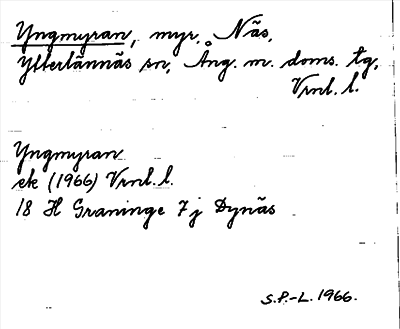 Yngmyran, myr, Näs,
Ytterlännäs sn, Ång. m. doms. tg,
Vrnl. l.
Yngmyran
ek (1966) Vrnl. l.
18 H Graninge 7 j Dynäs
S.P.-L. 1966.